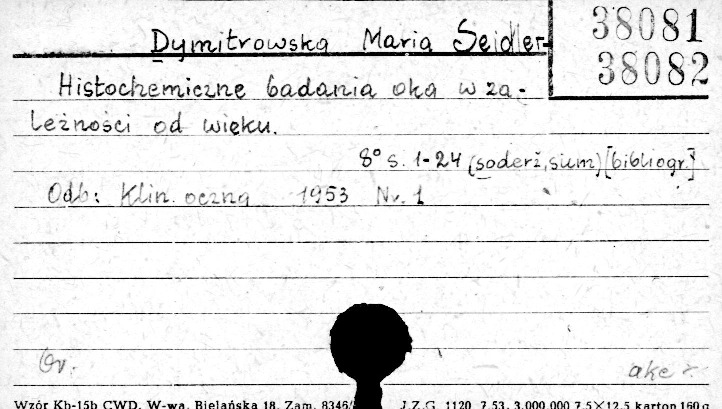 38081
Dymitrowska Maria Seidler-
38082
Histochemiczne badania oka w za-
leżności od wieku.
8° s. 1-24 (soderż, sum) [bibliogr.]
Odb: Klin. oczna 1953 Nr. 1
akc
Wzór Kb-15b CWD. W-wa, Bielańska 18. Zam. 8346/ J.Z.G. 1120 7.53. 3.000.000 7,5×12,5 karton 160 g